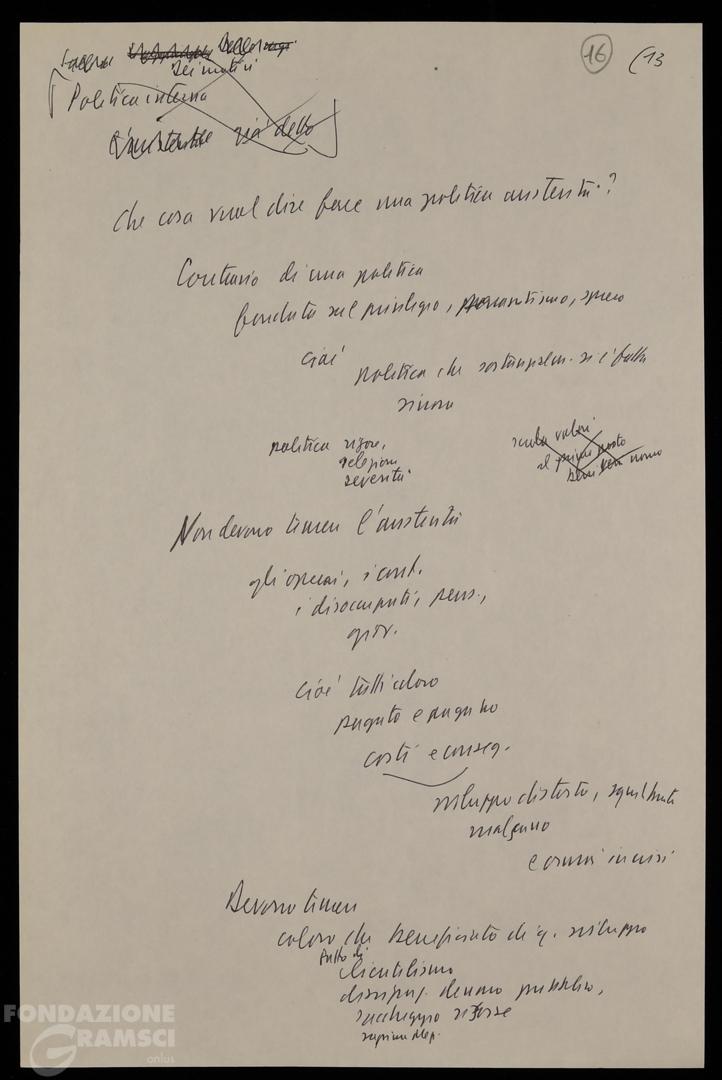 16 (13
dei motivi
Politica interna
L'austerità già detto
Che cosa vuol dire fare una politica austerità?
Contrario di una politica
fondata sul privilegio, parassitismo, spreco
cioè
politica che sostanzialm. si è fatta
sinora
politica rigore,
selezione
severità
scala valori
al primo posto
beni
uomo
Non devono temere l'austerità
gli operai, i cont.
i disoccupati, pens.,
giov.
cioè tutti coloro
pagato e pagano
costi e conseg.
sviluppo distorto, squilibrato
malsano
e ormai in crisi
Devono temere
coloro che beneficiato di q. sviluppo
fatto di
clientelismo
dissipaz. denaro pubblico,
saccheggio risorse
FONDAZIONE
GRAMSCI
onlus